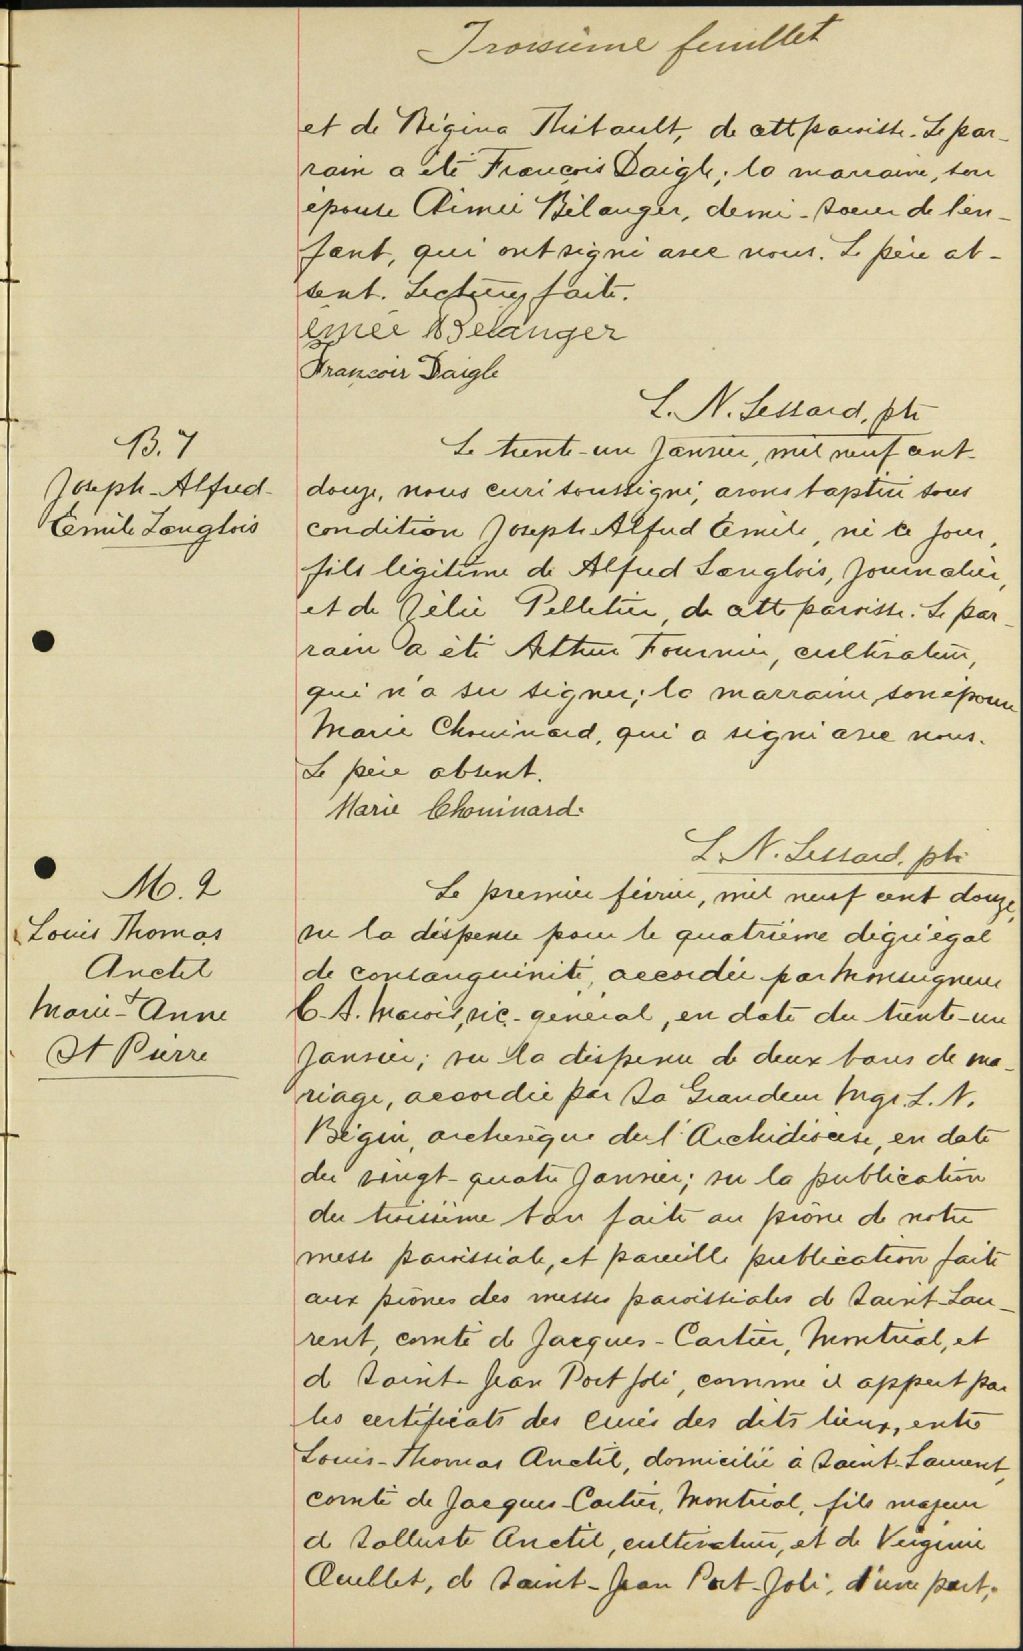 Troisième feuillet
et de Régina Thibault, de cette paroisse. Le par-
rain a été François Daigle; la marraine, son
épouse Aimée Bélanger, demi-soeur de l'en-
fant, qui ont signé avec nous. Le père ab-
sent. Lecture faite.
Emée Bélanger
François Daigle
L. N. Lessard, ptre
B. 7
Joseph-Alfred-
Emile Langlois
Le trente-un janvier, mil neuf cent-
douze, nous curé soussigné, avons baptisé sous
condition Joseph Alfred Emile, né ce jour,
fils légitime de Alfred Langlois, journalier,
et de Zélie Pelletier, de cette paroisse. Le par-
rain a été Arthur Fournier, cultivateur,
qui n'a su signer; la marraine, son épouse
Marie Chouinard, qui a signé avec nous.
Le père absent.
Marie Chouinard.
L. N. Lessard, ptre
M. 2
Louis Thomas
Anctil
+
Marie-Anne
St Pierre
Le premier février, mil neuf cent douze,
vu la dispense pour le quatrième degré égal
de consanguinité, accordée par Monseigneur
C. A. Marois, vic.-général, en date du trente-un
janvier; vu la dispense de deux bans de ma-
riage, accordée par Sa Grandeur Mgr. L. N.
Bégin, archevêque de l'Archidiocèse, en date
du vingt-quatre janvier; vu la publication
du troisième ban faite au prône de notre
messe paroissiale, et pareille publication faite
aux prônes des messes paroissiales de Saint-Lau-
rent, comté de Jacques-Cartier, Montréal, et
de Saint-Jean Port Joli, comme il appert par
les certificats des curés des dits lieux, entre
Louis-Thomas Anctil, domicilié à Saint-Laurent,
comté de Jacques-Cartier, Montréal, fils majeur
de Salluste Anctil, cultivateur, et de Virginie
Ouellet, de Saint-Jean Port-Joli, d'une part;